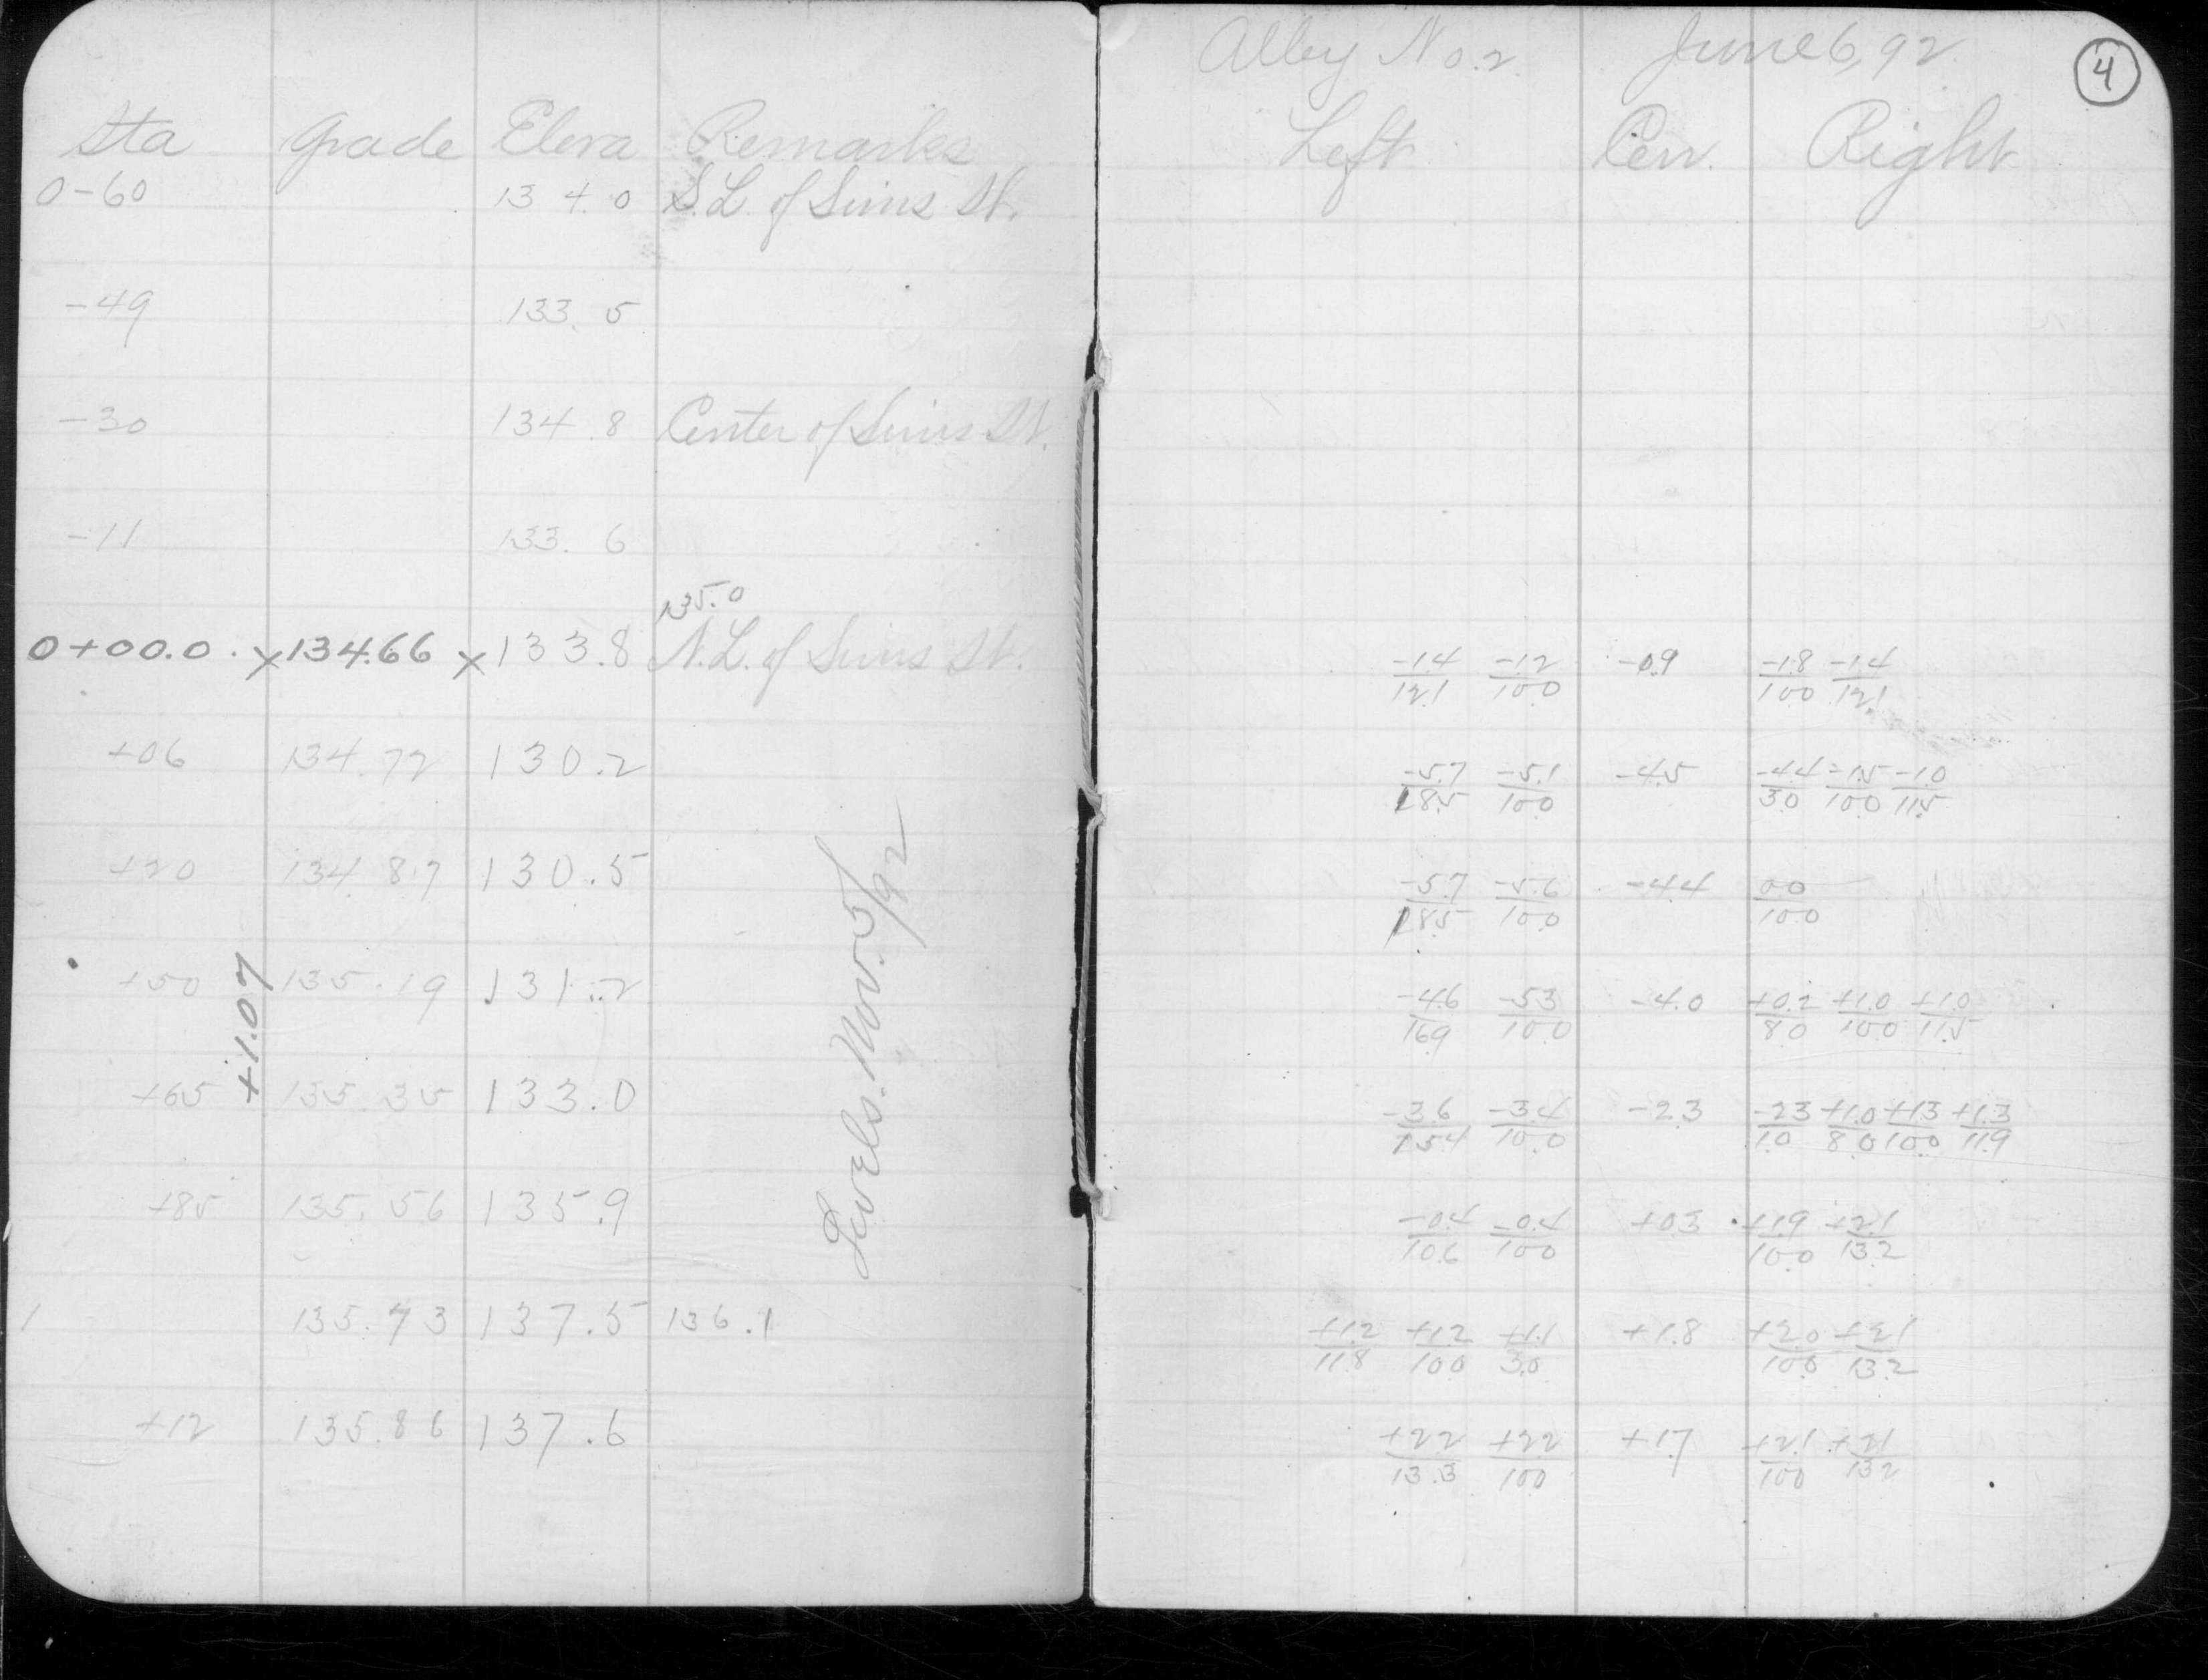 Sta Grade Eleva Remarks
0-60 134.0 S.L. of Sims St.
-49 133.5
-30 134.8 Center of Sims St.
-11 133.6
135.0
0+00.0 x 134.66 x 133.8 N.L. of Sims St.
+06 134.72 130.2
+20 134.87 130.5
+50 135.19 131.2
+1.07
+65 135.35 133.0
+85 135.56 135.9
1 135.73 137.5 136.1
+12 135.86 137.6
Levels. Nov. 5/92
Alley No. 2. June 6, 92
4
Left Cen. Right
-1.4/12.1 -1.2/10.0 -0.9 -1.8/10.0 -1.4/12.1
-5.7/18.5 -5.1/10.0 -4.5 -4.4/3.0 -1.5/10.0 -1.0/11.5
-5.7/18.5 -5.6/10.0 -4.4 0.0/10.0
-4.6/16.9 -5.3/10.0 -4.0 +0.2/8.0 +1.0/10.0 +1.0/11.5
-3.6/15.4 -3.4/10.0 -2.3 -2.3/1.0 +1.0/8.0 +1.3/10.0 +1.3/11.9
-0.4/10.6 -0.4/10.0 +0.3 +1.9/10.0 +2.1/13.2
+1.2/11.8 +1.2/10.0 +1.1/3.0 +1.8 +2.0/10.0 +2.1/13.2
+2.2/13.3 +2.2/10.0 +1.7 +2.1/10.0 +2.1/13.2